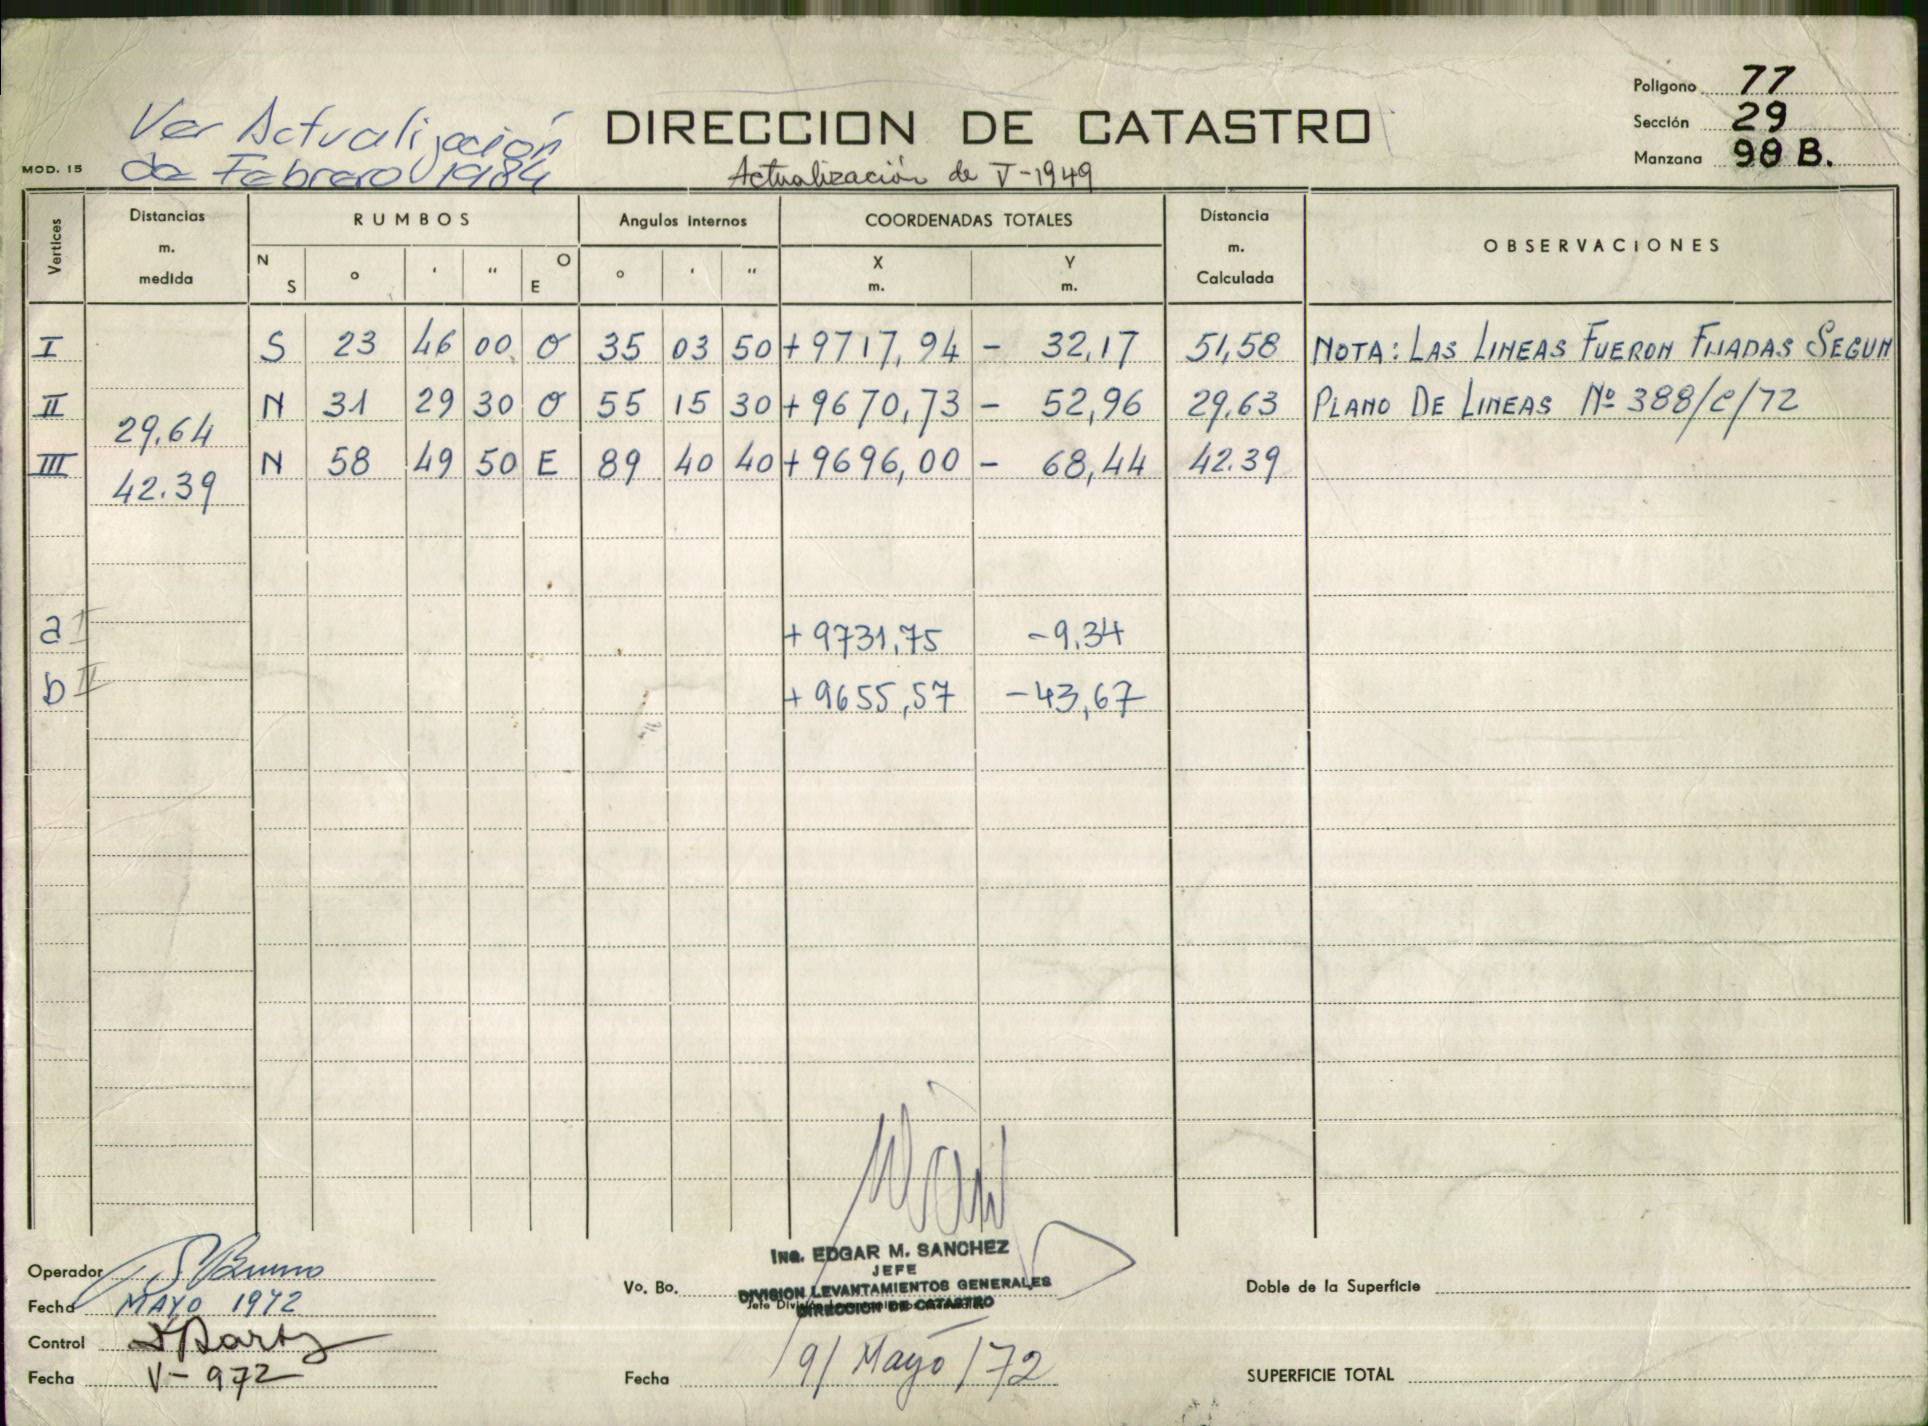 Ver Actualización
de Febrero 1984
DIRECCION DE CATASTRO
Actualización de V-1949
MOD. 15
Polígono 77
Sección 29
Manzana 98 B.
Vertices
Distancias
m.
medida
RUMBOS
N
S
°
'
"
O
E
Angulos internos
°
'
"
COORDENADAS TOTALES
X
m.
Y
m.
Distancia
m.
Calculada
OBSERVACIONES
I S 23 46 00 O 35 03 50 +9717,94 - 32,17 51,58 NOTA: LAS LINEAS FUERON FIJADAS SEGUN
II N 31 29 30 O 55 15 30 +9670,73 - 52,96 29,63 PLANO DE LINEAS Nº 388/C/72
29,64
III N 58 49 50 E 89 40 40 +9696,00 - 68,44 42.39
42.39
a I +9731,75 -9,34
b II +9655,57 -43,67
Operador
Fecha MAYO 1972
Control
Fecha V-972
Vo. Bo.
Ing. EDGAR M. SANCHEZ
JEFE
DIVISION LEVANTAMIENTOS GENERALES
DIRECCION DE CATASTRO
Fecha 9/ Mayo /72
Doble de la Superficie
SUPERFICIE TOTAL